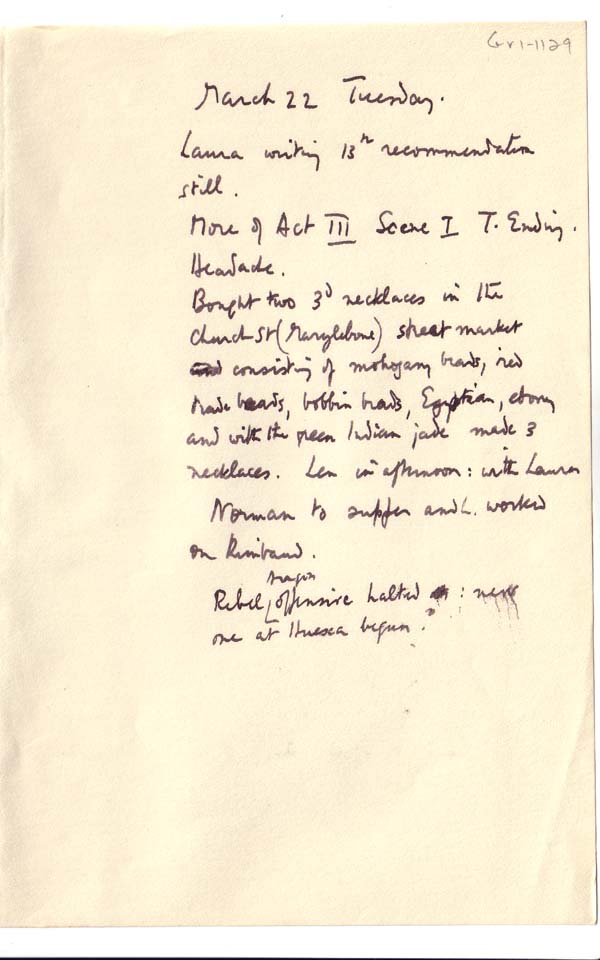 Gv1-1129
March 22 Tuesday.
Laura writing 13th recommendation
still.
More of Act III Scene I T. Ending.
Headache.
Bought two 3d necklaces in the
Church St (Marylebone) street market
consisting of mohogany beads, red
trade beads, bobbin beads, Egyptian, ebony
and with the green Indian jade made 3
necklaces. Len in afternoon: with Laura
Norman to supper and L. worked
on Rimbaud.
Aragon
Rebel offensive halted : new
one at Huesca begun.